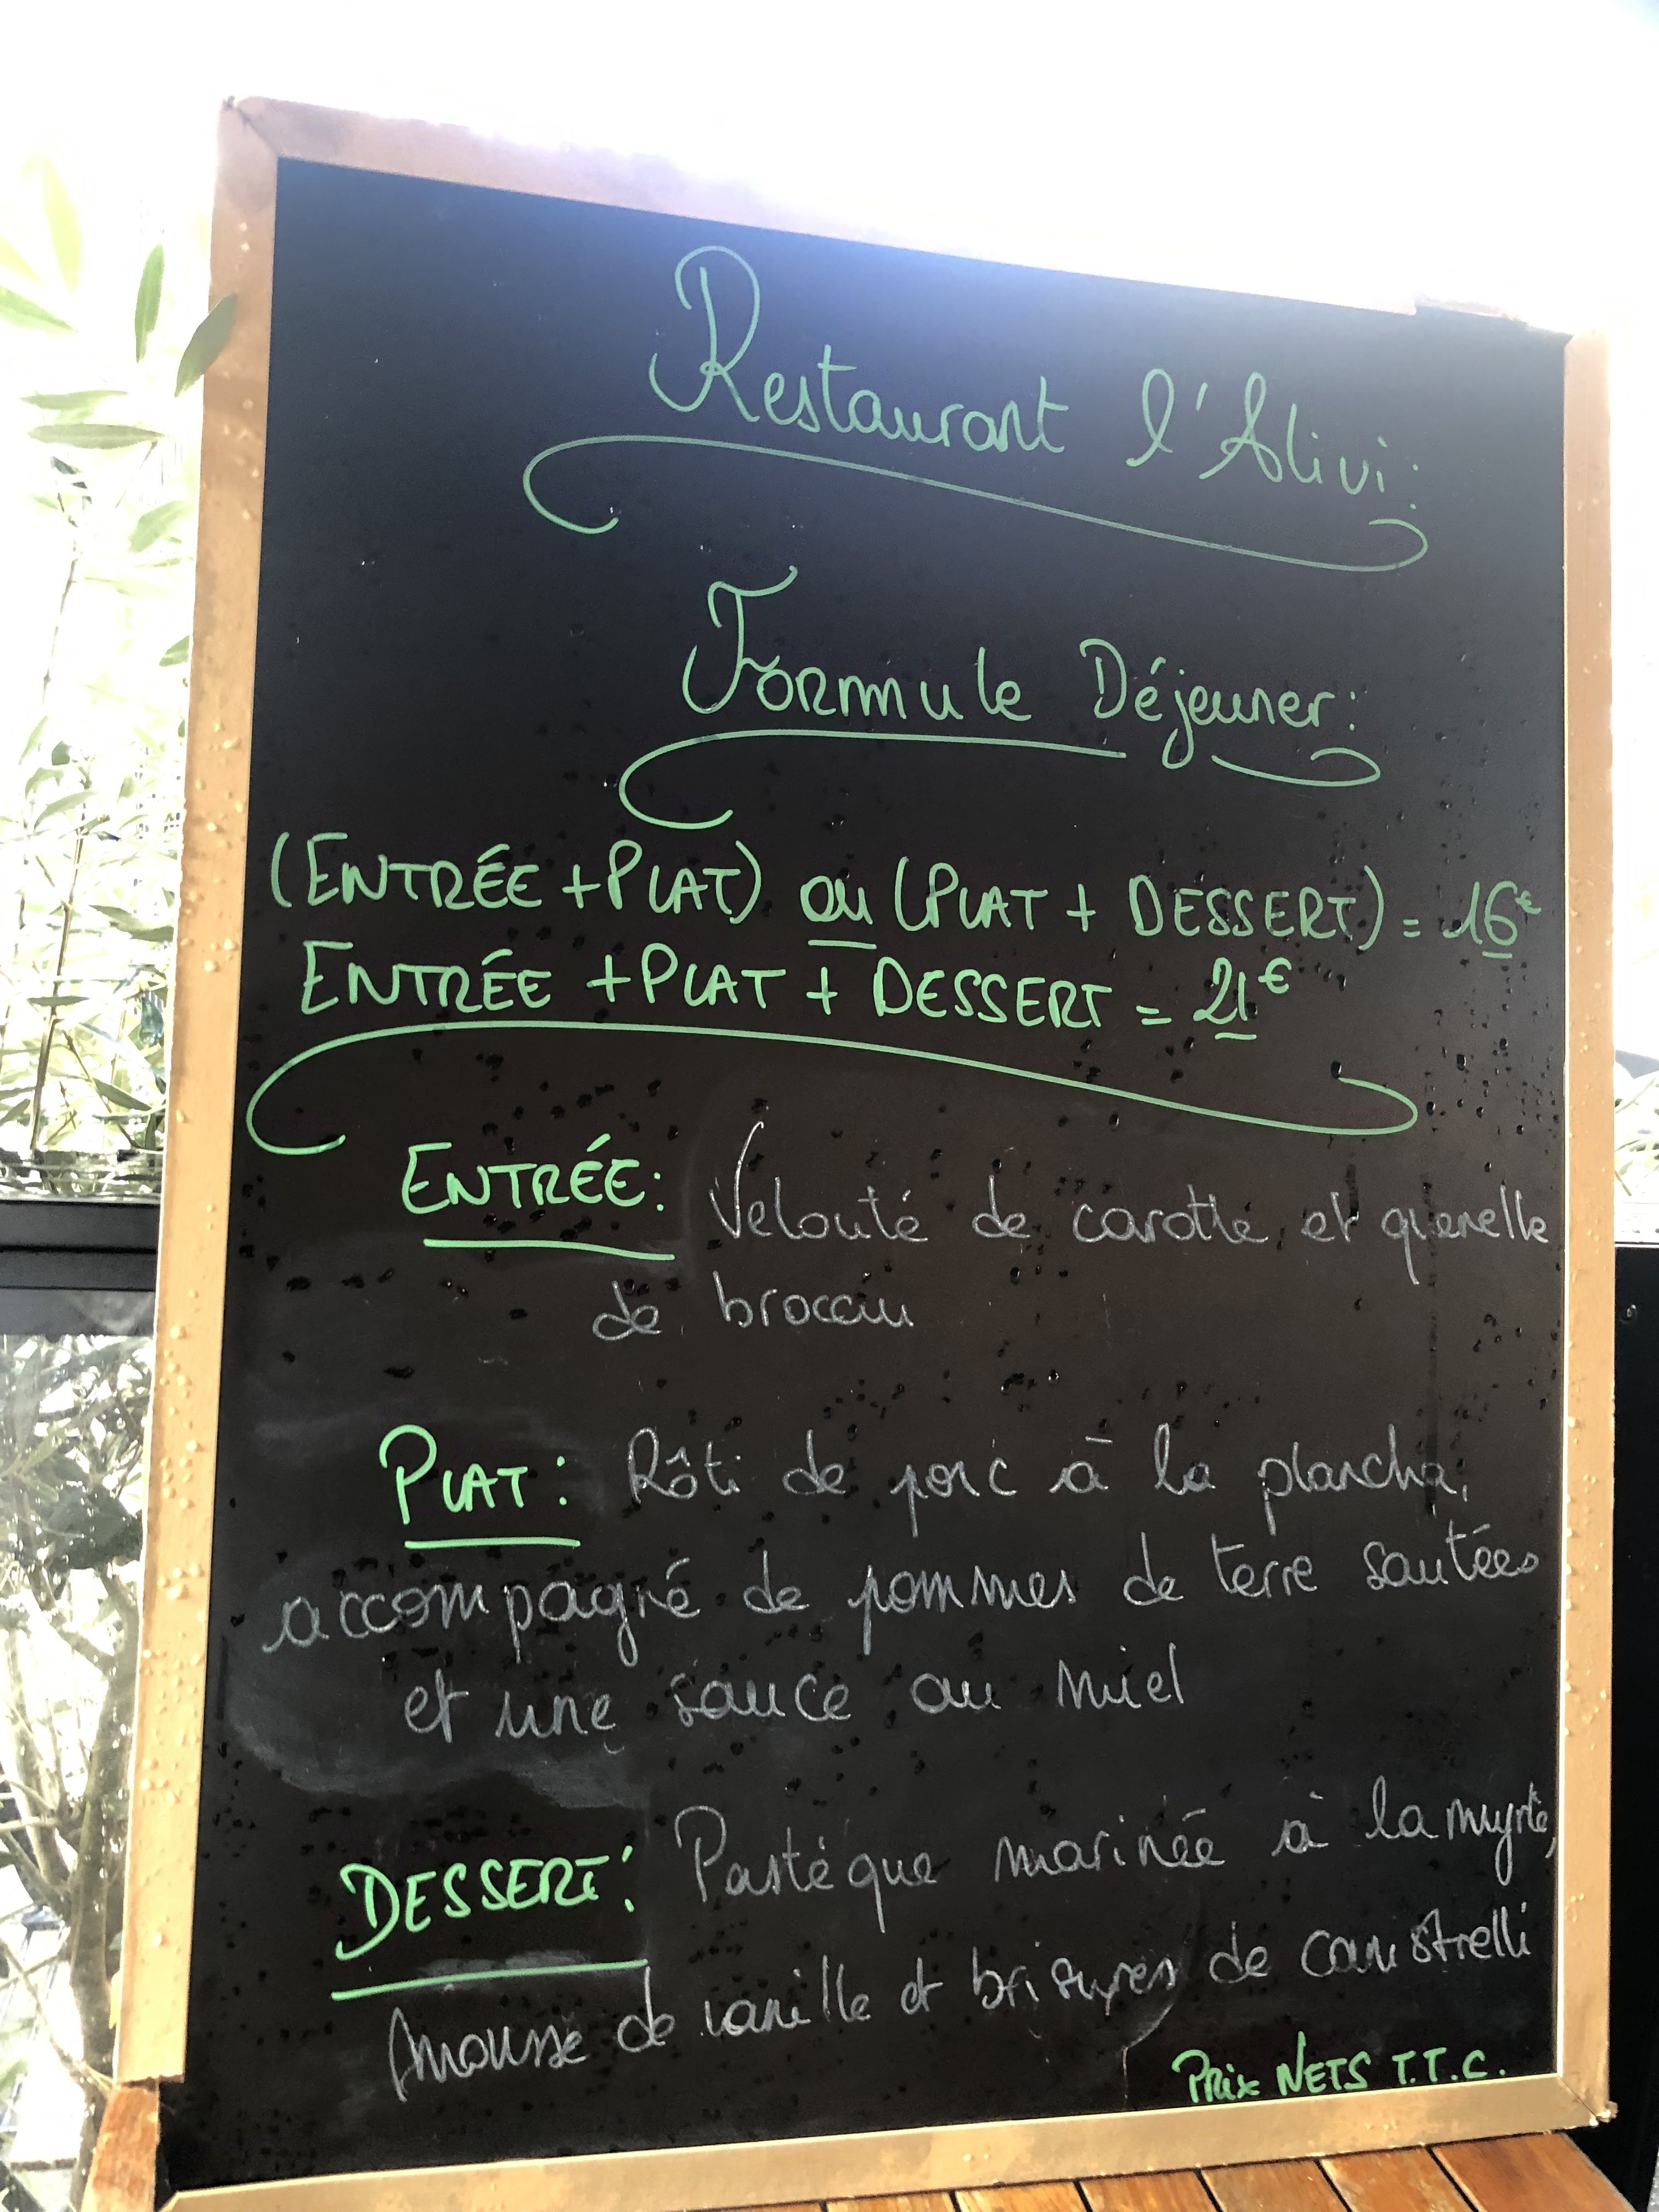 Restaurant l'Alivi:
Formule Déjeuner:
(ENTRÉE + PLAT) ou (PLAT + DESSERT) = 16€
ENTRÉE + PLAT + DESSERT = 21€
ENTRÉE: Velouté de carotte et quenelle
de brocciu
PLAT: Rôti de porc à la plancha,
accompagné de pommes de terre sautées
et une sauce au miel
DESSERT: Pastèque marinée à la myrte,
mousse de vanille et brisures de canistrelli
Prix NETS T.T.C.